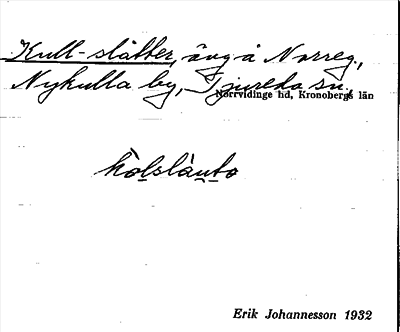 Kull-slätter, äng å Norreg.,
Nykulla by, Tjureda sn.,
Norrvidinge hd, Kronobergs län
Erik Johannesson 1932